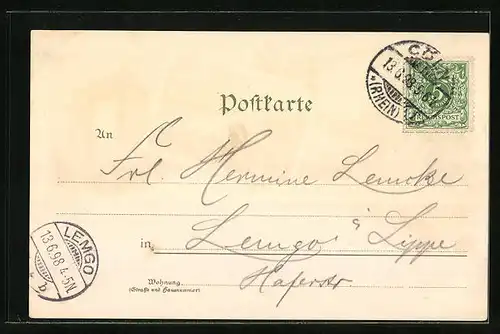 CÖLN
13.6.98
(RHEIN)
5
REICHSPOST
Postkarte
An
Frl. Hermine Lemcke
in Lemgo i/ Lippe
Haferstr
Wohnung
(Straße und Hausnummer)
LEMGO
13.6.98 4-5N